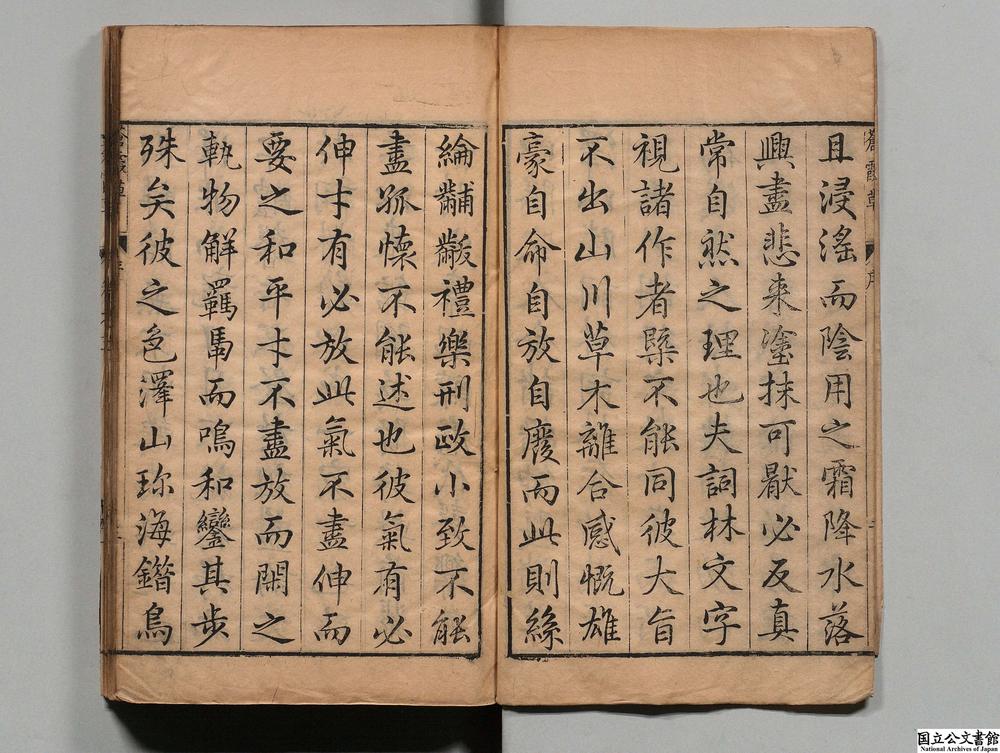 蒼霞草
序
且浸淫而陰用之霜降水落
興盡悲来塗抹可厭必反真
常自然之理也夫詞林文字
視諸作者槩不能同彼大旨
不出山川草木離合感慨雄
豪自命自放自廢而此則絲
綸黼黻禮樂刑政小致不能
盡孤懷不能述也彼氣有必
伸才有必放此氣不盡伸而
要之和平才不盡放而閑之
軌物解羈馽而鳴和鑾其步
殊矣彼之色澤山珎海錯鳥
國立公文書館
National Archives of Japan